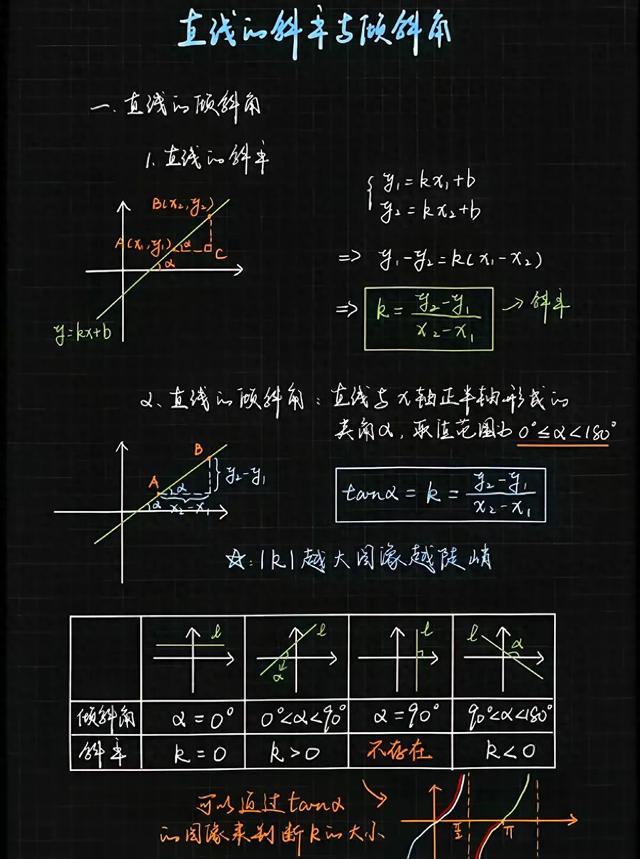 直线的斜率与倾斜角
一、直线的倾斜角
1. 直线的斜率
B(x₂,y₂)
A(x₁,y₁) α C
α
y=kx+b
{ y₁=kx₁+b
y₂=kx₂+b
=> y₁-y₂=k(x₁-x₂)
=> k = (y₂-y₁)/(x₂-x₁) → 斜率
2. 直线的倾斜角：直线与x轴正半轴形成的
夹角α，取值范围为 0°≤α<180°
B
A α } y₂-y₁
α x₂-x₁
tanα = k = (y₂-y₁)/(x₂-x₁)
☆: |k|越大图像越陡峭
l l l l α
α
倾斜角 α=0° 0°<α<90° α=90° 90°<α<180°
斜率 k=0 k>0 不存在 k<0
可以通过tanα
的图像来判断k的大小
π/2 π